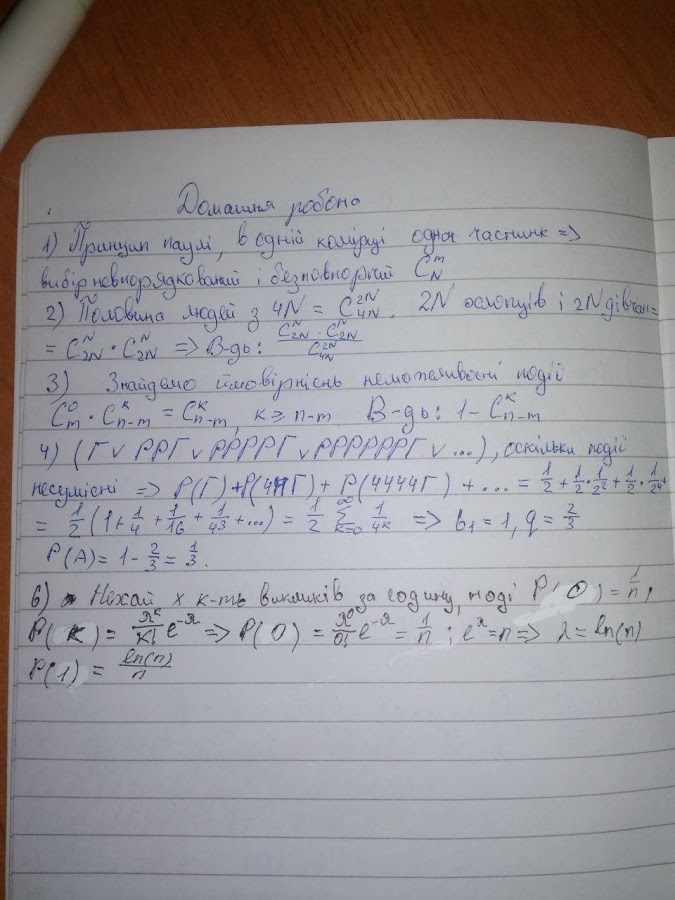 Домашня робота
1) Принцип паулі, в одній комірці одна частинк =>
вибір невпорядкований і безповторний C_N^m
2) Половина людей з 4N = C_{4N}^{2N}. 2N хлопців і 2N дівчат =
= C_{2N}^N · C_{2N}^N => В-дь: \frac{C_{2N}^N · C_{2N}^N}{C_{4N}^{2N}}
3) Знайдемо ймовірнісь неможливості події
C_m^0 · C_{n-m}^k = C_{n-m}^k, k ≥ n-m В-дь: 1 - C_{n-m}^k
4) (Г v РРГ v РРРРГ v РРРРРРГ v ...), оскільки події
несумісні => P(Г)+P(ЧЧГ) + P(ЧЧЧЧГ) + ... = \frac{1}{2} + \frac{1}{2} · \frac{1}{2^2} + \frac{1}{2} · \frac{1}{2^4} +
= \frac{1}{2} (1 + \frac{1}{4} + \frac{1}{16} + \frac{1}{4^3} + ...) = \frac{1}{2} \sum_{k=0}^∞ \frac{1}{4^k} => b_1 = 1, q = \frac{2}{3}
P(A) = 1 - \frac{2}{3} = \frac{1}{3}.
6) Нехай x к-ть викликів за годину, тоді P(0) = \frac{1}{n},
P(k) = \frac{λ^k}{k!} e^{-λ} => P(0) = \frac{λ^0}{0!} e^{-λ} = \frac{1}{n} ; e^λ = n => λ = ln(n)
P(1) = \frac{ln(n)}{n}